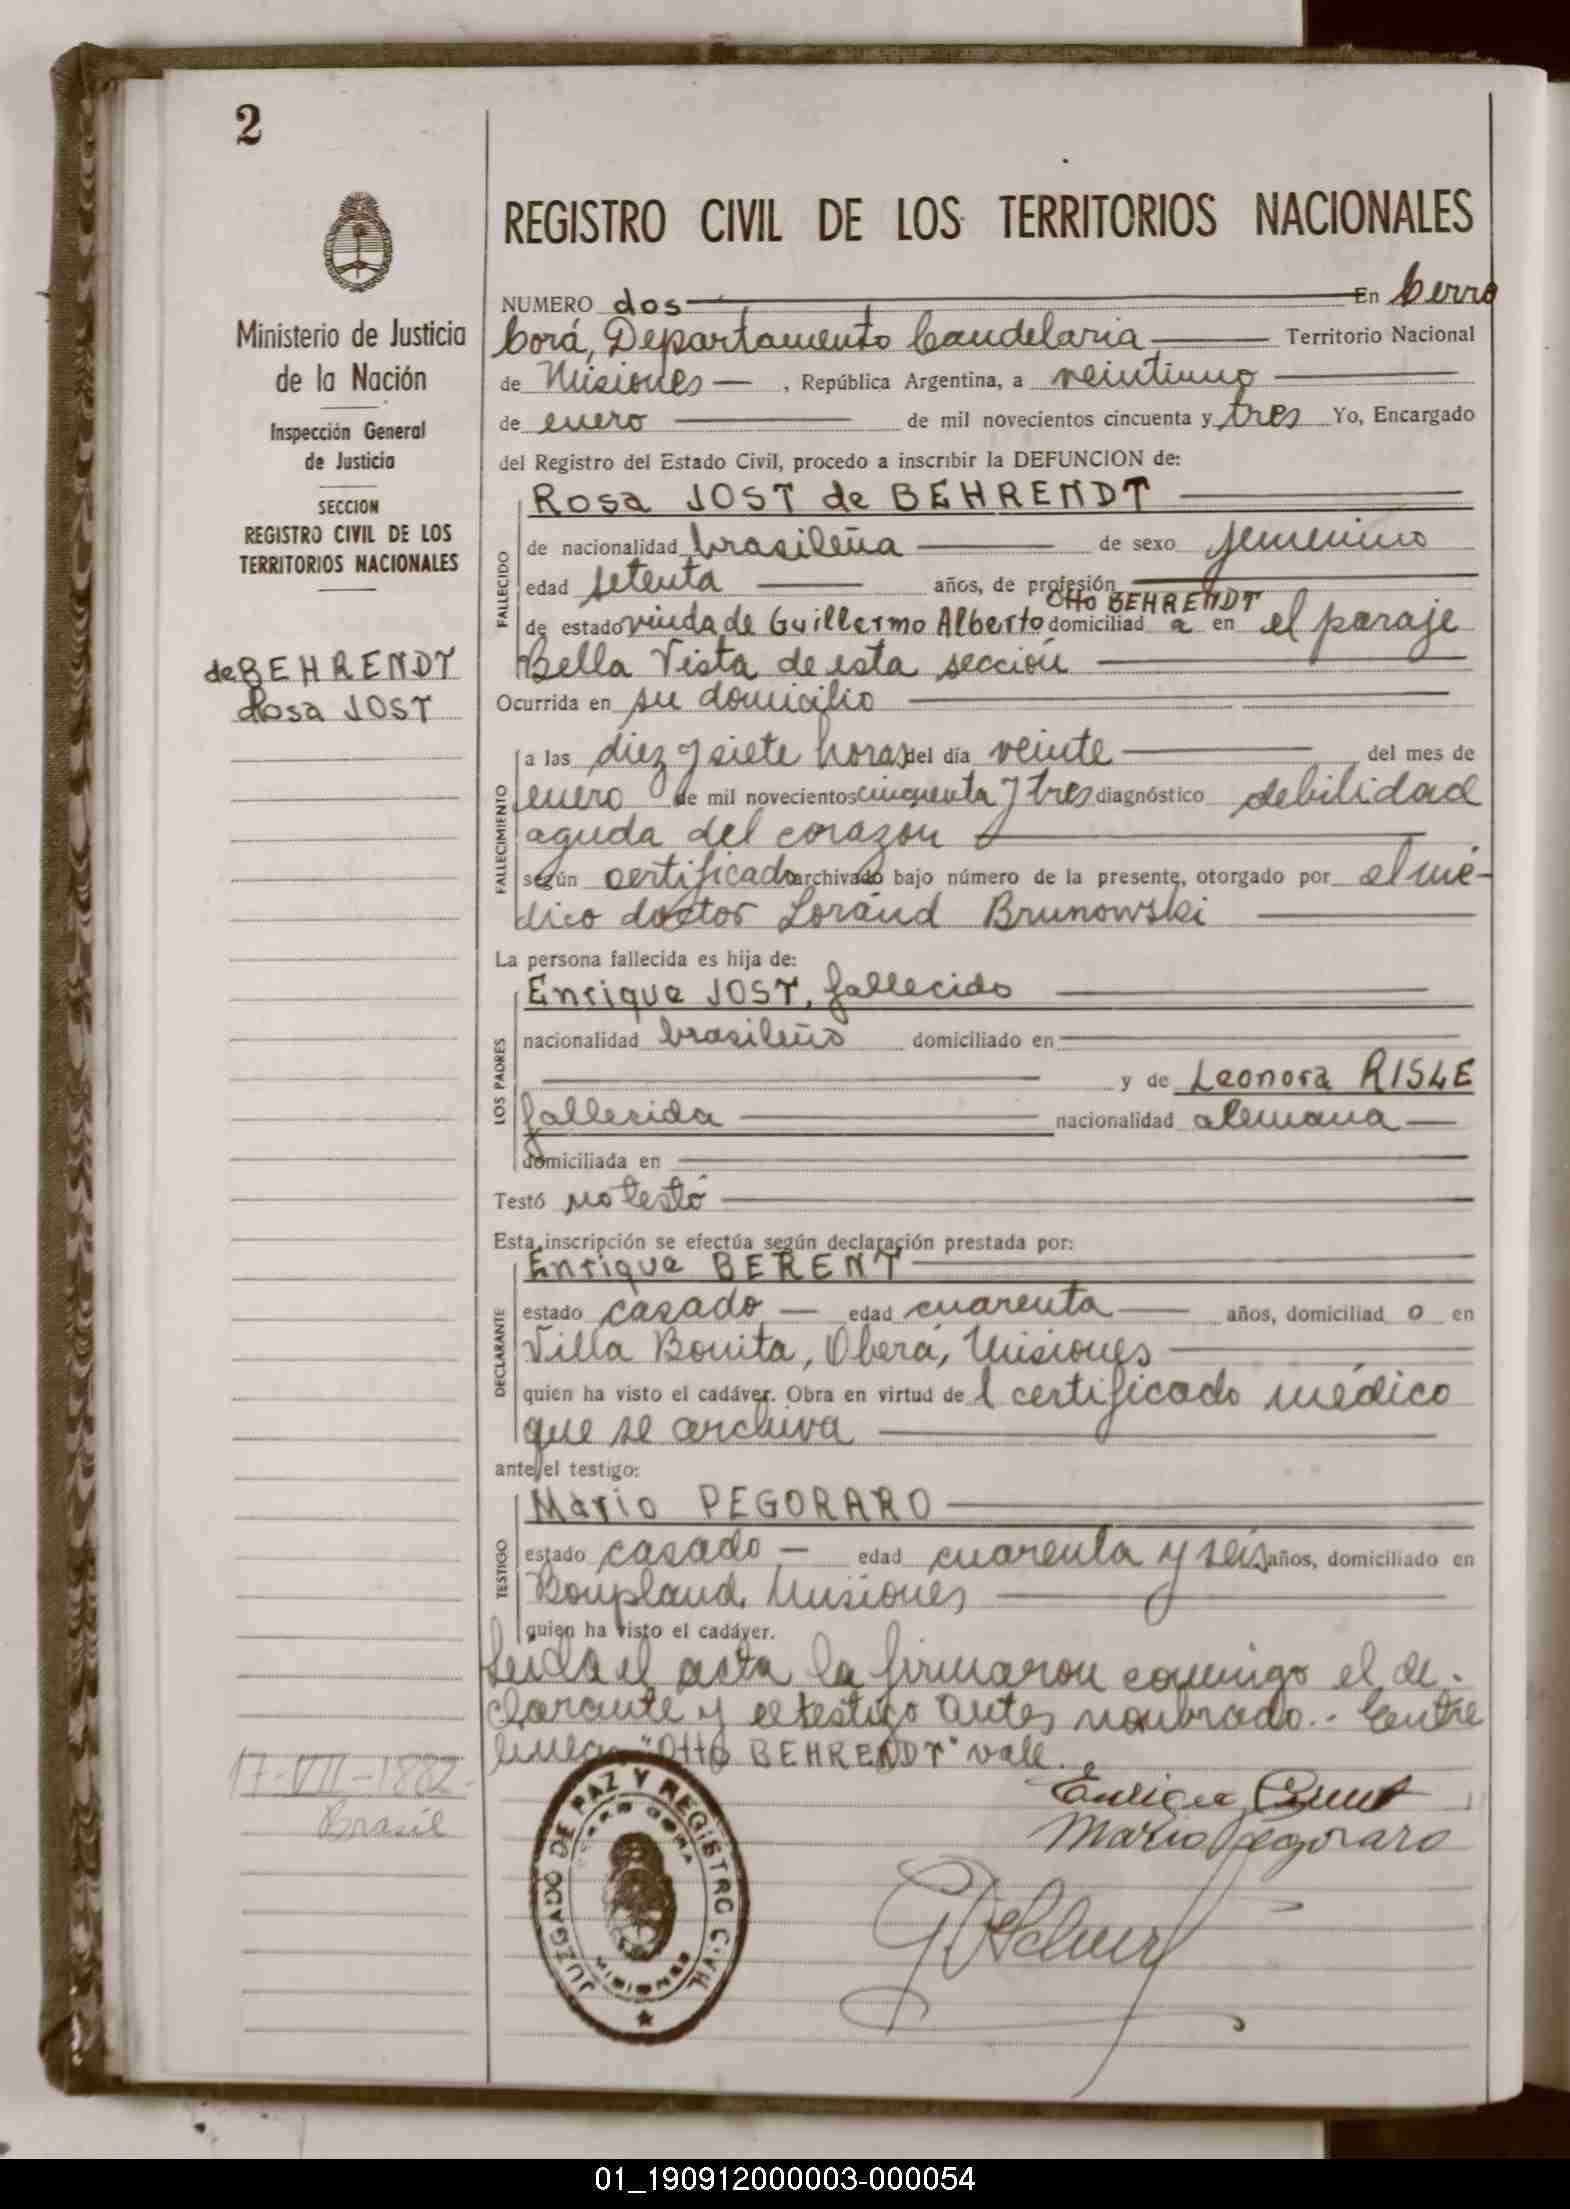 2
REGISTRO CIVIL DE LOS TERRITORIOS NACIONALES
Ministerio de Justicia
de la Nación
Inspección General
de Justicia
SECCION
REGISTRO CIVIL DE LOS
TERRITORIOS NACIONALES
de BEHRENDT
Rosa JOST
17-VII-1882-
Brasil
NUMERO dos En Cerro
Corá, Departamento Candelaria Territorio Nacional
de Misiones , República Argentina, a veintiuno
de enero de mil novecientos cincuenta y tres Yo, Encargado
del Registro del Estado Civil, procedo a inscribir la DEFUNCION de:
Rosa JOST de BEHRENDT
FALLECIDO
de nacionalidad brasileña de sexo femenino
edad setenta años, de profesión
Otto BEHRENDT
de estado viuda de Guillermo Alberto domiciliad a en el paraje
Bella Vista de esta sección
Ocurrida en su domicilio
FALLECIMIENTO
a las diez y siete horas del día veinte del mes de
enero de mil novecientos cincuenta y tres diagnóstico debilidad
aguda del corazon
según certificado archivado bajo número de la presente, otorgado por el mé-
dico doctor Loránd Brunowski
La persona fallecida es hija de:
LOS PADRES
Enrique JOST, fallecido
nacionalidad brasileño domiciliado en
y de Leonora RISLE
fallecida nacionalidad alemana
domiciliada en
Testó no testó
Esta inscripción se efectúa según declaración prestada por:
DECLARANTE
Enrique BERENT
estado casado edad cuarenta años, domiciliad o en
Villa Bonita, Oberá, Misiones
quien ha visto el cadáver. Obra en virtud de l certificado médico
que se archiva
ante el testigo:
TESTIGO
Mario PEGORARO
estado casado edad cuarenta y seis años, domiciliado en
Bonpland, Misiones
quien ha visto el cadáver.
Leida el acta la firmaron conmigo el de-
clarante y el testigo antes nombrado.- Entre
lineas "Otto BEHRENDT" vale.
Mario Pegoraro
JUZGADO DE PAZ Y REGISTRO CIVIL
CERRO CORA
MISIONES
01_190912000003-000054